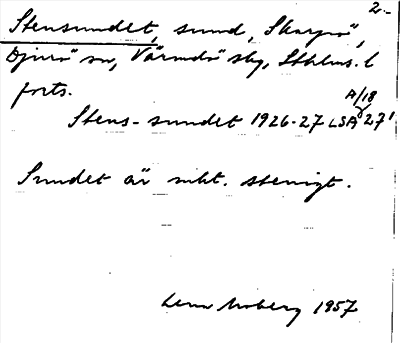 2.-
Stensundet, sund, Skarpö,
Djurö sn, Värmdö sbg, Sthlms. l
forts.
A/18
Stens-sundet 1926-27 LSA 27'
Sundet är mkt. stenigt.
Lena Moberg 1957